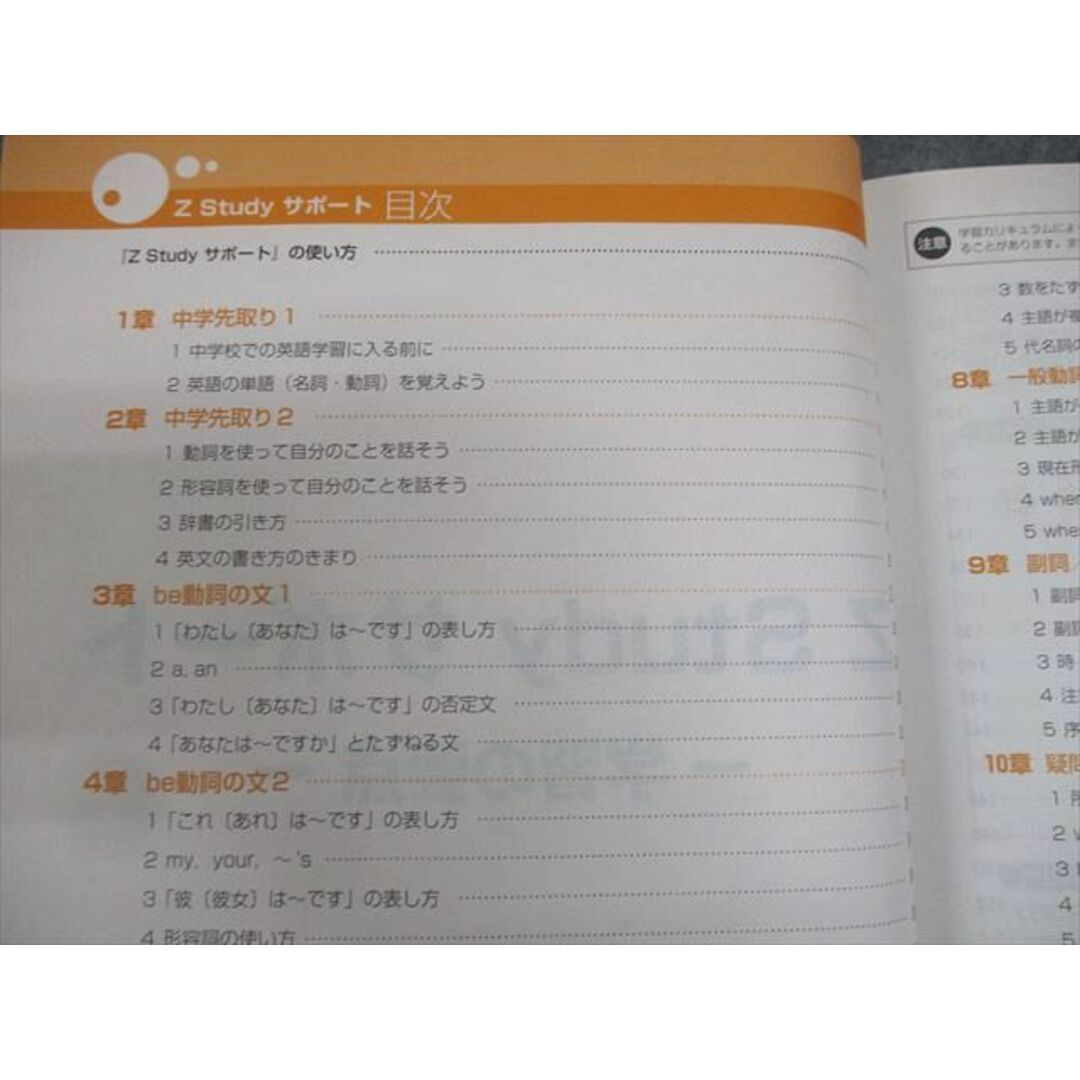 Z Study サポート 目次
『Z Study サポート』の使い方
1章 中学先取り1
1 中学校での英語学習に入る前に
2 英語の単語（名詞・動詞）を覚えよう
2章 中学先取り2
1 動詞を使って自分のことを話そう
2 形容詞を使って自分のことを話そう
3 辞書の引き方
4 英文の書き方のきまり
3章 be動詞の文1
1「わたし〔あなた〕は～です」の表し方
2 a, an
3「わたし〔あなた〕は～です」の否定文
4「あなたは～ですか」とたずねる文
4章 be動詞の文2
1「これ〔あれ〕は～です」の表し方
2 my, your, ～'s
3「彼〔彼女〕は～です」の表し方
4 形容詞の使い方
注意
学習カリキュラムによ
ることがあります。ま
3 数をたず
4 主語が複
5 代名詞の
8章 一般動詞
1 主語が
2 主語が
3 現在形
4 when
5 whe
9章 副詞
1 副詞
2 副詞
3 時
4 注
5 序
10章 疑問
1
2
3
4
5